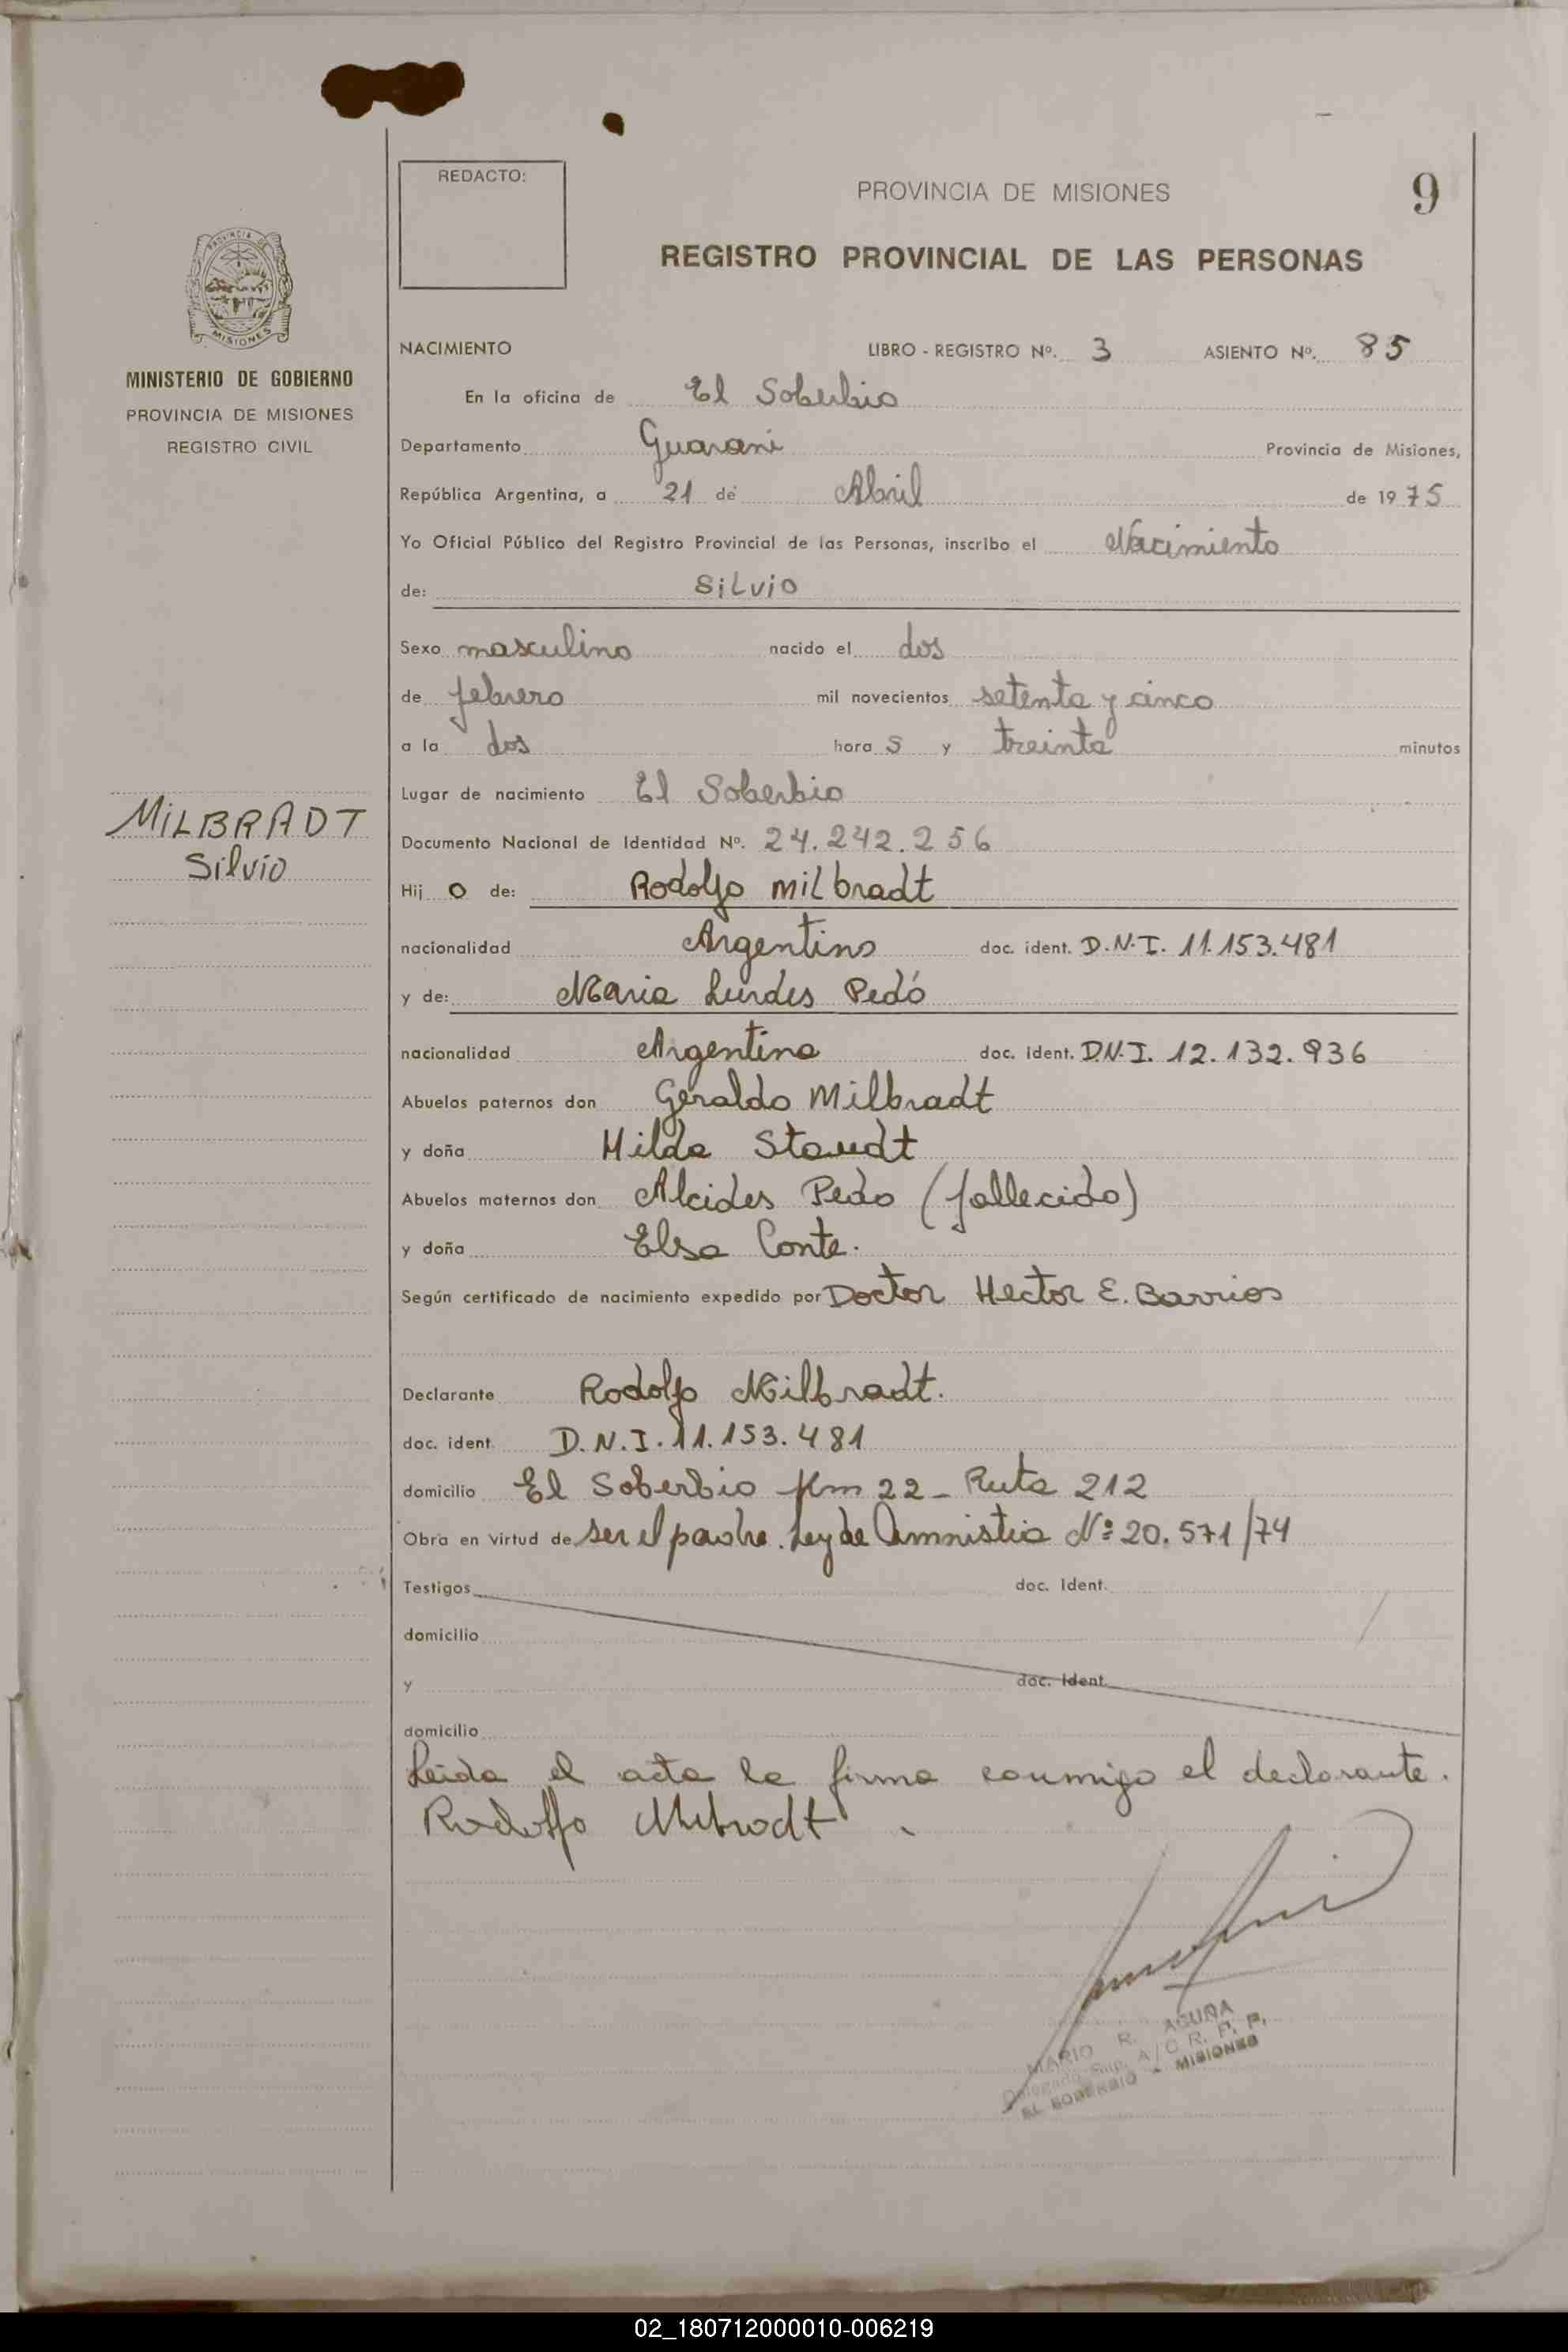 REDACTO:
PROVINCIA DE MISIONES
9
REGISTRO PROVINCIAL DE LAS PERSONAS
PROVINCIA DE
MISIONES
MINISTERIO DE GOBIERNO
PROVINCIA DE MISIONES
REGISTRO CIVIL
NACIMIENTO LIBRO - REGISTRO Nº. 3 ASIENTO Nº. 85
En la oficina de El Soberbio
Departamento Guarani Provincia de Misiones,
República Argentina, a 21 de Abril de 1975
Yo Oficial Público del Registro Provincial de las Personas, inscribo el Nacimiento
de: Silvio
Sexo masculino nacido el dos
de febrero mil novecientos setenta y cinco
a la dos hora s y treinta minutos
Lugar de nacimiento El Soberbio
MILBRADT
Silvio
Documento Nacional de Identidad Nº. 24.242.256
Hij o de: Rodolfo Milbradt
nacionalidad Argentino doc. ident. D.N.I. 11.153.481
y de: Maria Lurdes Pedó
nacionalidad Argentina doc. ident. D.N.I. 12.132.936
Abuelos paternos don Geraldo Milbradt
y doña Hilda Staudt
Abuelos maternos don Alcides Pedo (fallecido)
y doña Elsa Conte.
Según certificado de nacimiento expedido por Doctor Hector E. Barrios
Declarante Rodolfo Milbradt.
doc. ident. D.N.I. 11.153.481
domicilio El Soberbio Km 22 - Ruta 212
Obra en virtud de ser el padre. Ley de Amnistia Nº 20.571/74
Testigos doc. ident.
domicilio
y doc. ident.
domicilio
Leida el acta la firma conmigo el declarante.
Rodolfo Milbradt
MARIO R. AGURA
Delegado Sup. A/C R. P. P.
EL SOBERBIO - MISIONES
02_180712000010-006219